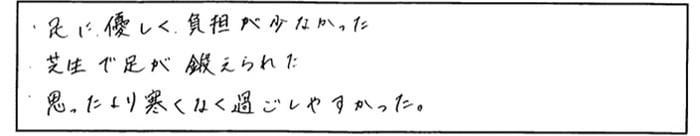 ・足に優しく負担が少なかった
・芝生で足が鍛えられた
・思ったより寒くなく過ごしやすかった。